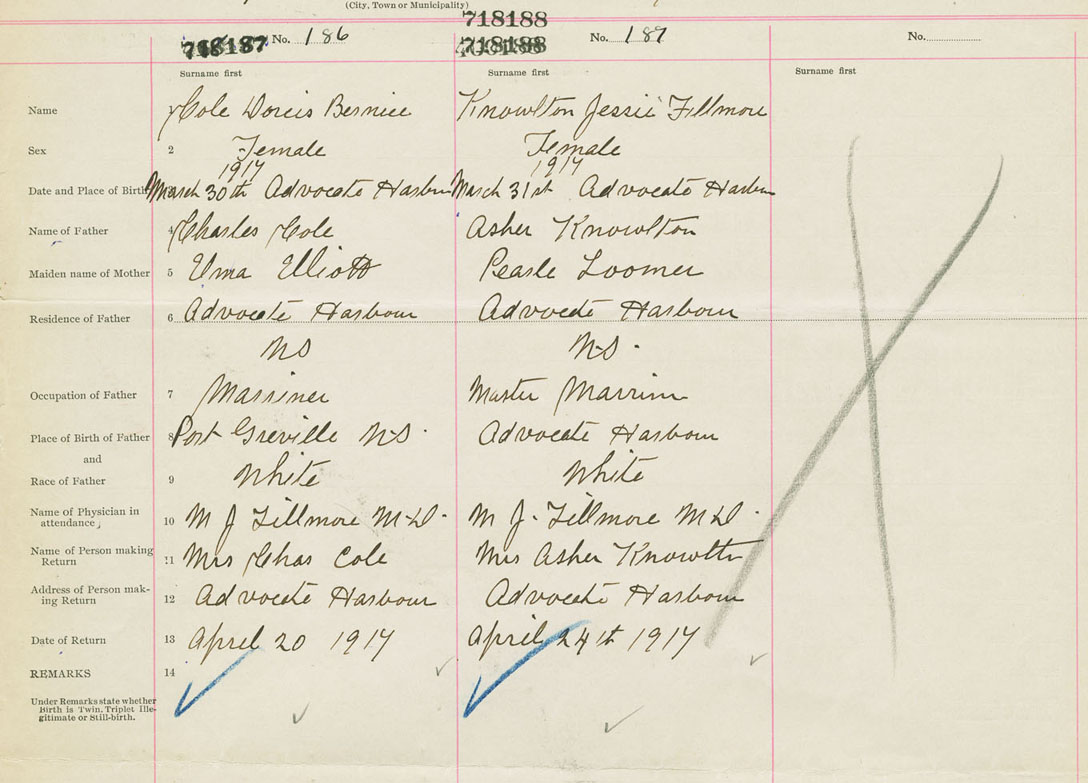 (City, Town or Municipality)
718188
718187 No. 186 718188 No. 187 No.
Surname first Surname first Surname first
Name Cole Dorcis Bernice Knowlton Jessie Fillmore
Sex 2 Female Female
1917 1917
Date and Place of Birth March 30th Advocate Harbour March 31st Advocate Harbour
Name of Father 4 Charles Cole Asher Knowlton
Maiden name of Mother 5 Elliott Pearle Loomer
Residence of Father 6 Advocate Harbour Advocate Harbour
NS N.S.
Occupation of Father 7 Marriner Master Marriner
Place of Birth of Father 8 Port Greville N.S. Advocate Harbour
and
Race of Father 9 White White
Name of Physician in
attendance, 10 M J Fillmore M.D. M J. Fillmore M.D.
Name of Person making
Return 11 Mrs Chas Cole Mrs Asher Knowlton
Address of Person mak-
ing Return 12 Advocate Harbour Advocate Harbour
Date of Return 13 April 20 1917 April 24th 1917
REMARKS 14
Under Remarks state whether
Birth is Twin, Triplet Ille-
gitimate or Still-birth.